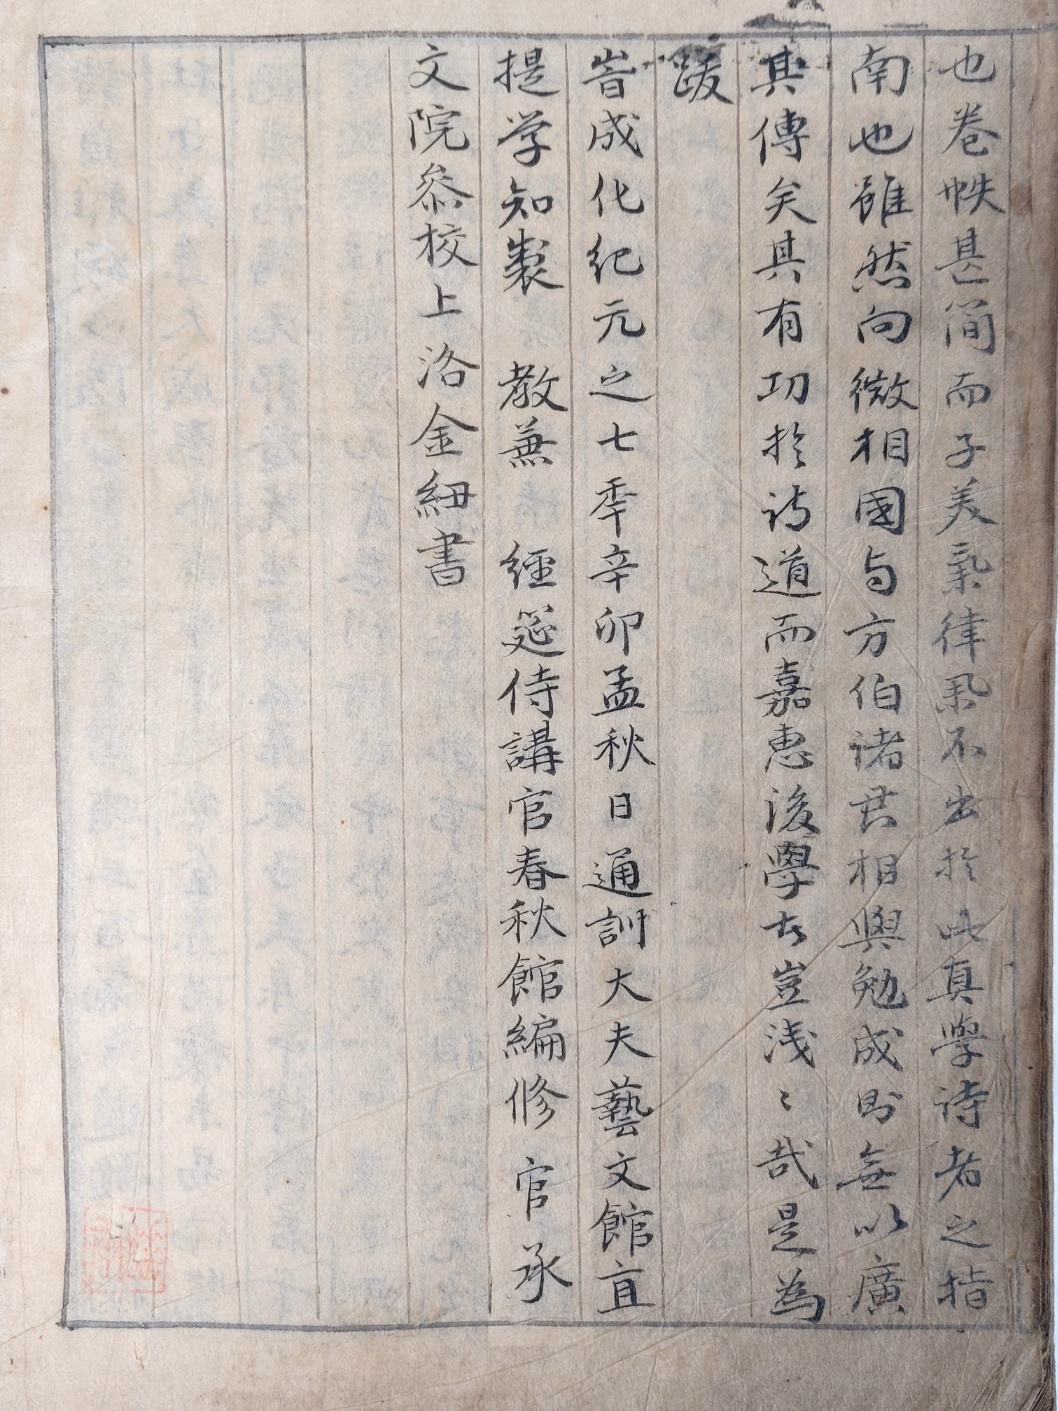 也卷帙甚簡而子美氣律風不出於此真學詩者之指
南也雖然向微相國与方伯諸君相與勉成則無以廣
其傳矣其有功於詩道而嘉惠後學夫豈浅〻哉是為
跋
峕成化紀元之七年辛卯孟秋日通訓大夫藝文館直
提学知製 教兼 經筵侍講官春秋館編修官承
文院叅校上洛金紐書